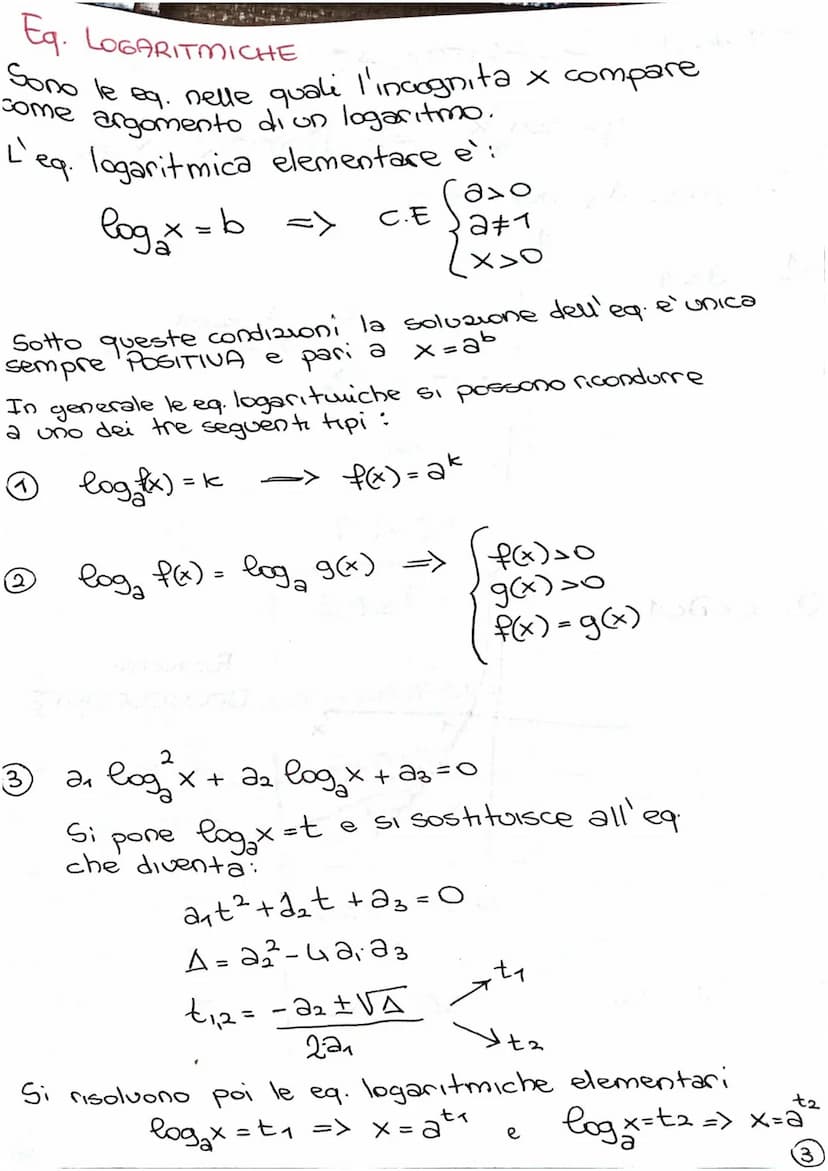 Eq. LOGARITMICHE
Sono le eq. nelle quali l'incognita x compare
come argomento di un logaritmo.
L'eq. logaritmica elementare e':
logₐx = b => C.E { a>0
a≠1
x>0
Sotto queste condizioni la soluzione dell'eq. e' unica
sempre POSITIVA e pari a x=aᵇ
In generale le eq. logaritmiche si possono ricondurre
a uno dei tre seguenti tipi:
① logₐf(x) = k —> f(x) = aᵏ
② logₐ f(x) = logₐ g(x) => { f(x)>0
g(x)>0
f(x) = g(x)
③ a₁ logₐ²x + a₂ logₐx + a₃ = 0
Si pone logₐx = t e si sostituisce all'eq.
che diventa:
a₁t² + a₂t + a₃ = 0
Δ = a₂² - 4a₁a₃
t₁,₂ = (-a₂ ± √Δ) / 2a₁ t₁ t₂
Si risolvono poi le eq. logaritmiche elementari
logₐx = t₁ => x = a^t₁ e logₐx = t₂ => x = a^t₂
③